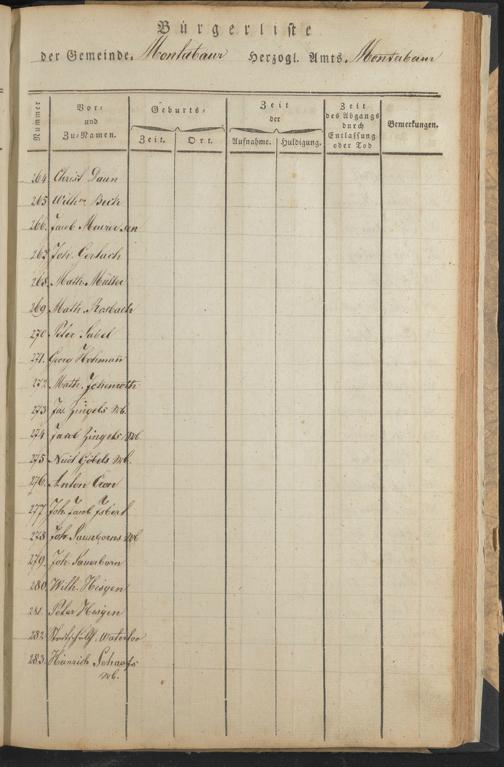 Bürgerliste
der Gemeinde Montabaur Herzogl. Amts Montabaur
Nummer
Vor-
und
Zu-Namen.
Geburts-
Zeit. Ort.
Zeit
der
Aufnahme. Huldigung.
Zeit
des Abgangs
durch
Entlassung
oder Tod
Bemerkungen.
264 Christ Daun
265 Wilhm Bech
266. Jacob Maurer sen
267 Joh. Gerlach
268. Math. Müller
269 Math. Rosbach
270 Peter Sabel
271. Georg Hohman
272 Math. Johenroth
273 Jos. Zingels Wb.
274 Jacob Zingels Wb
275 Göbels Wb.
276. Anton Cron
277 Joh. Jacob Isbert
278 Joh. Sauerborns Wb
279. Joh. Sauerborn
280 Wilh. Hisgen
281 Peter Hisgen
282. Waterloo
283. Heinrich Schaafs
Wb.